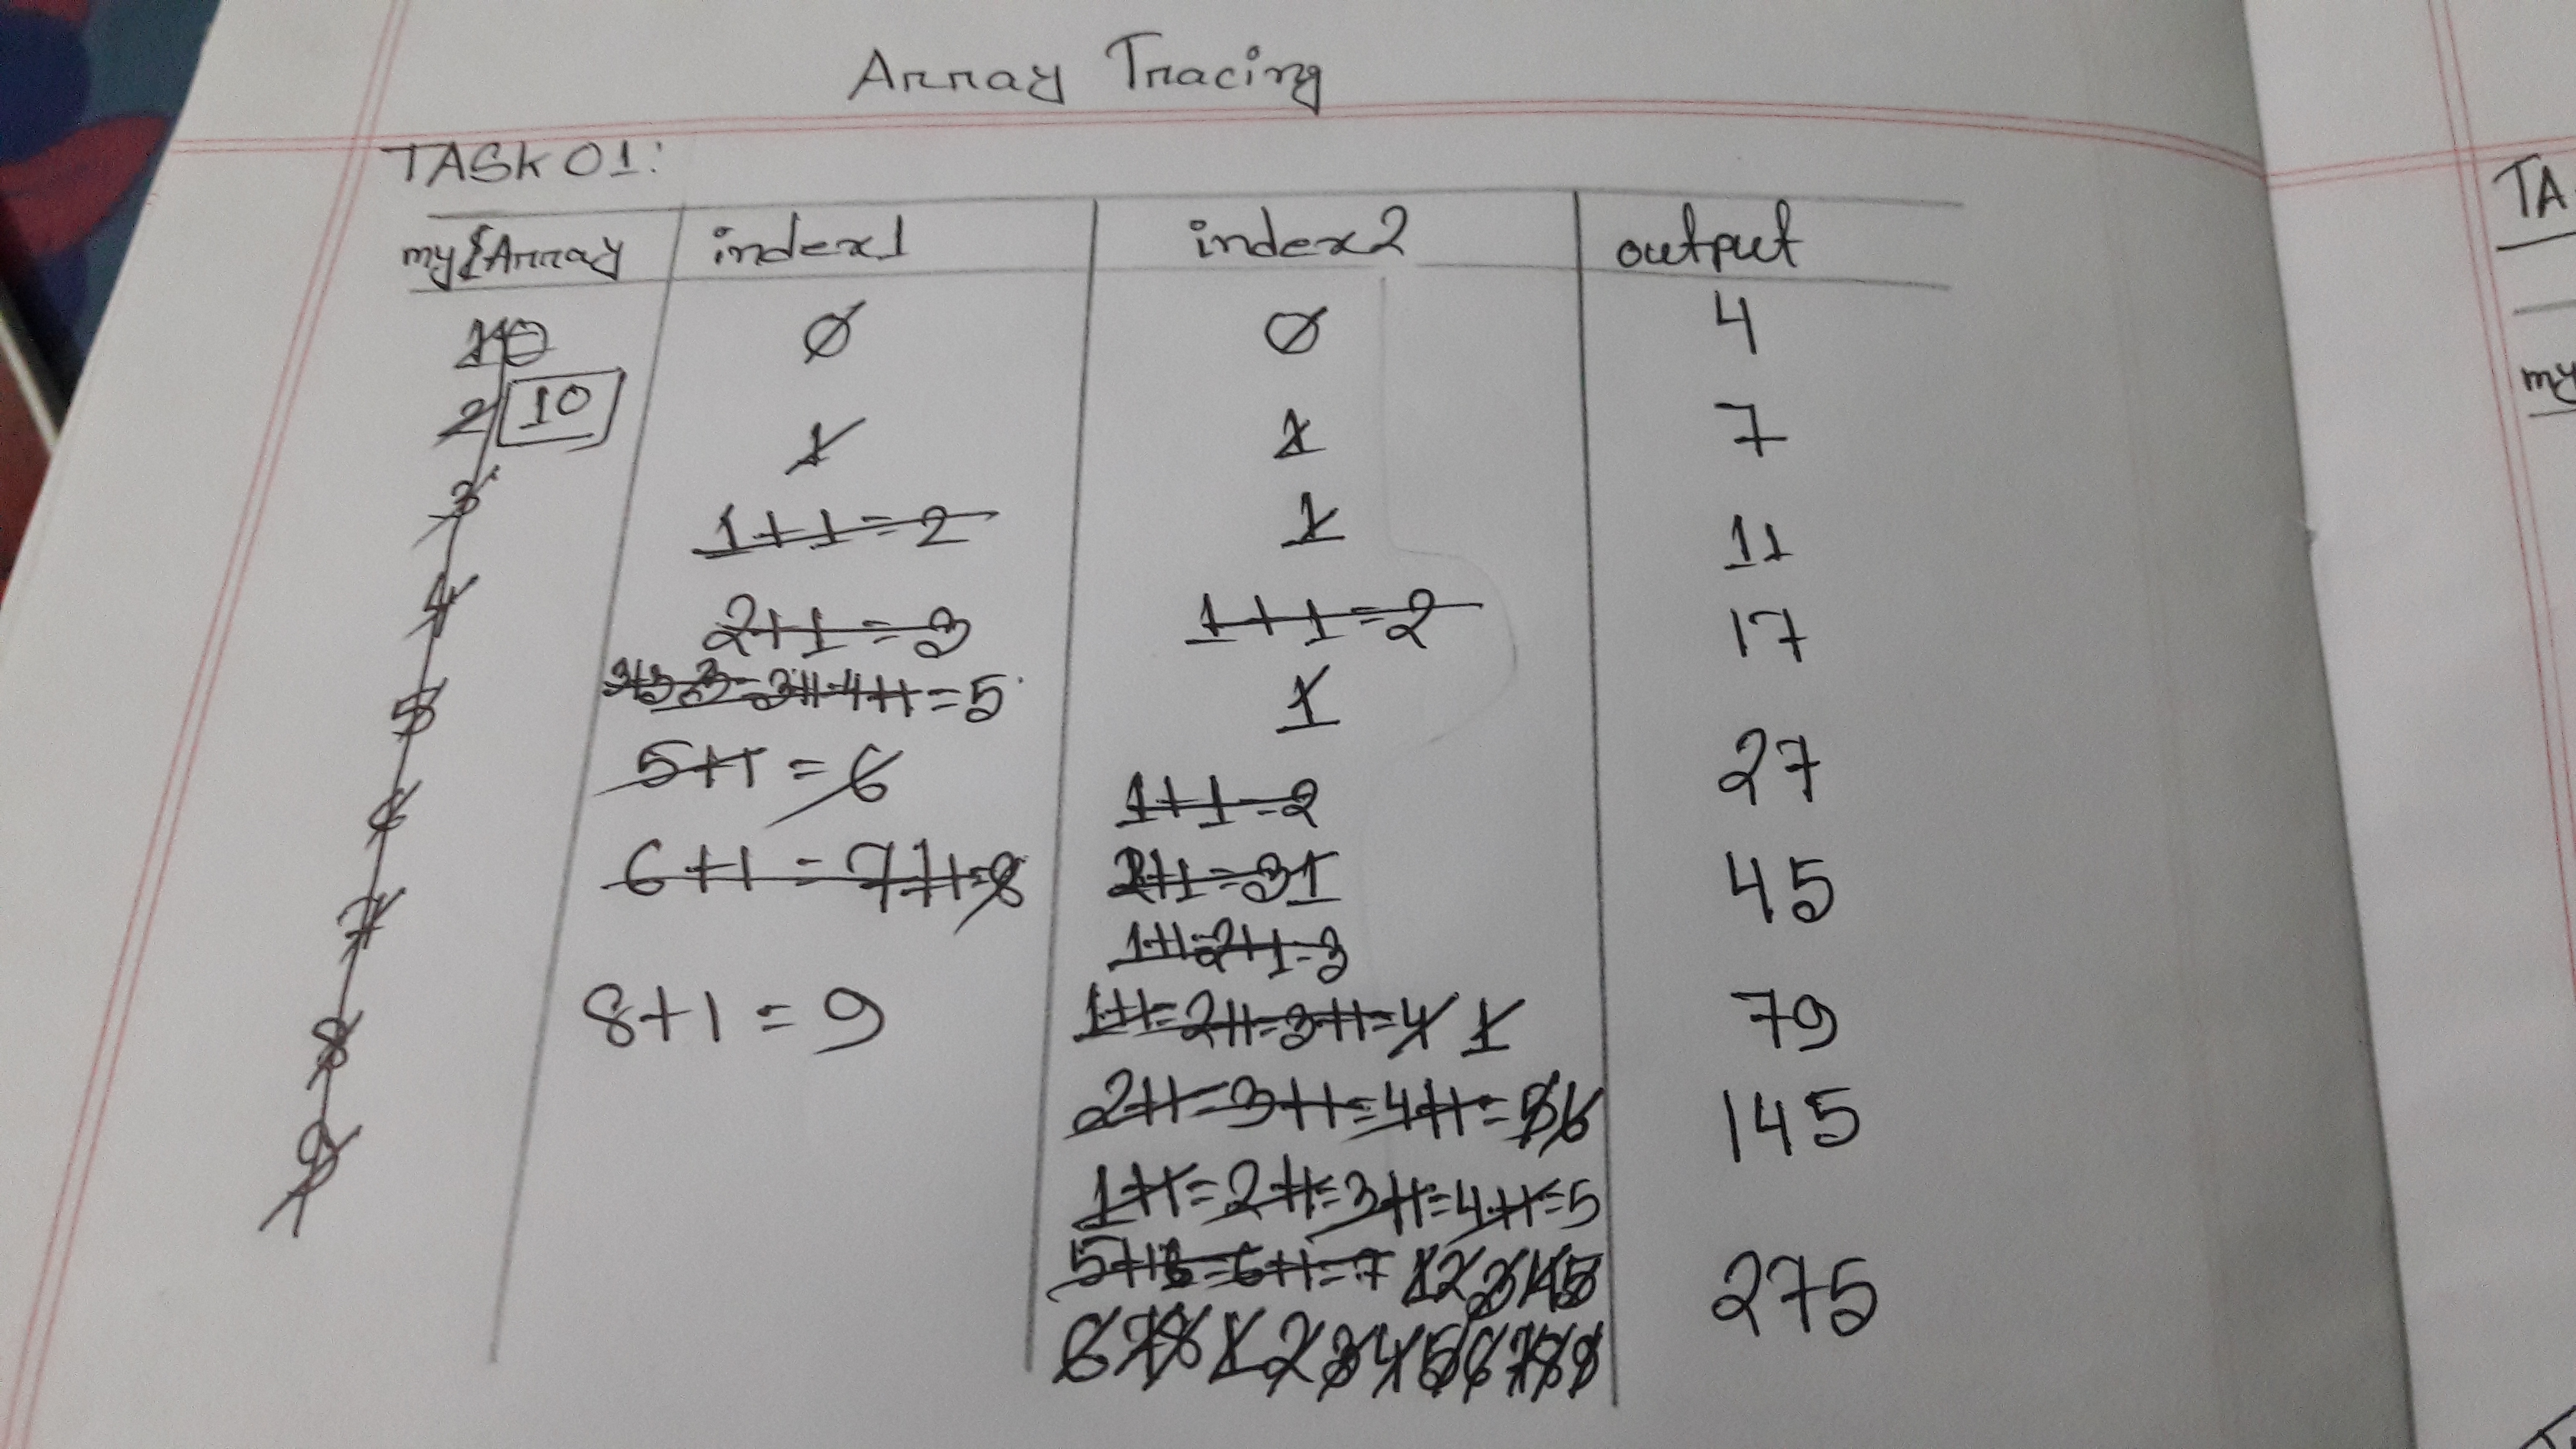 Array Tracing
TASK 01:
my Array index1 index2 output
0 0 4
2 10 1 1 7
3 1+1=2 1 11
4 2+1=3 1+1=2 17
5 3+1=4+1=5 1
5+1=6 27
6 1+1=2
6+1=7+1=8 2+1=31 45
7 1+1=2+1=3
8 8+1=9 1+1=2+1=3+1=4 1 79
2+1=3+1=4+1=56 145
9 1+1=2+1=3+1=4+1=5
5+1=6+1=7 12345 275
678123456789
TA
my